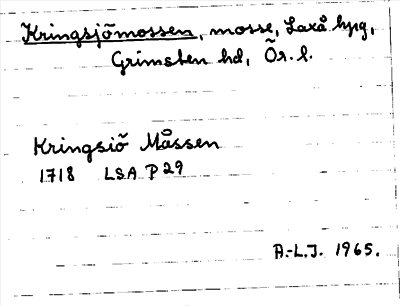 Kringsjömossen, mosse, Laxå kpg,
Grimsten hd, Ör. l.
Kringsiö Måssen
1718 LSA P 29
A.-L.J. 1965.